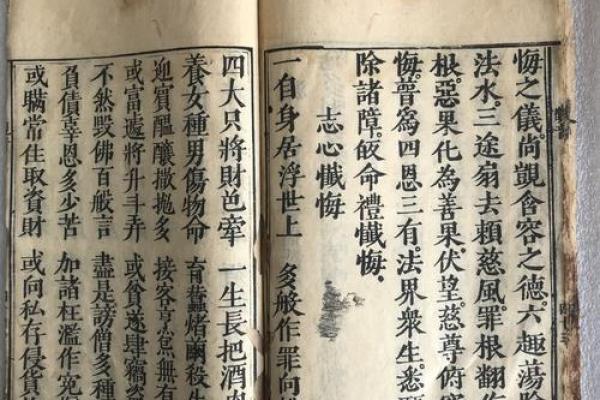 悔之儀尚覬含容之德。六趣蕩除
法水。三途扇去頼慈風罪根翻作
根。惡果化為善果。伏望。慈尊俯
悔。普爲四恩三有。法界衆生。悉
除諸障。皈命禮懺悔。
志心懺悔
一自身居浮世上　多般作罪向
四大只將財色牽　一生長把酒肉
養女種男傷物命　育蠶煮繭殺生
迎賓醞釀撒抛多　接客烹炰無有
或富遞將升斗弄　或貧遂肆竊
不然毀佛百般言　盡是謗僧多種
負債辜恩多少苦　加諸枉濫作寃
或瞞常住取資財　或向私存侵貨